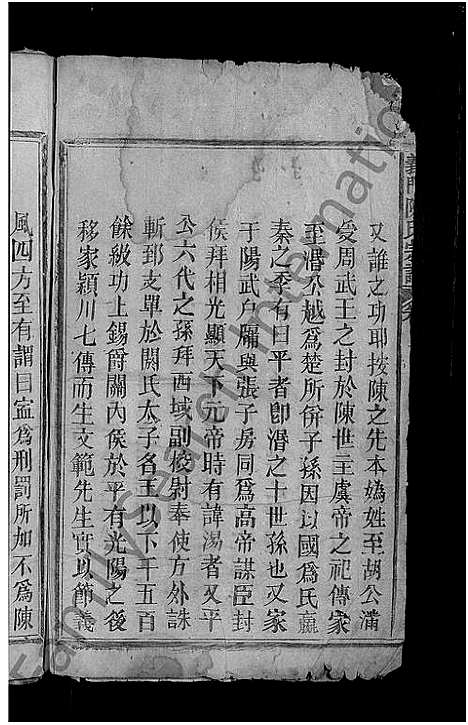 義門陳氏宗譜
又誰之功耶按陳之先本媯姓至胡公滿
受周武王之封於陳世主虞帝之祀傳家
至湣公越爲楚所併子孫因以國爲氏嬴
秦之季有曰平者卽湣之十世孫也又家
于陽武户牖與張子房同爲高帝謀臣封
侯拜相光顯天下元帝時有諱湯者又平
公六代之孫拜西域副校尉奉使方外誅
斬郅支單於閼氏太子名王以下千五百
餘級功上錫爵關內侯於平有光陽之後
移家潁川七傳而生文範先生實以節義
風四方至有謂曰寧爲刑罰所加不爲陳
FamilySearch International